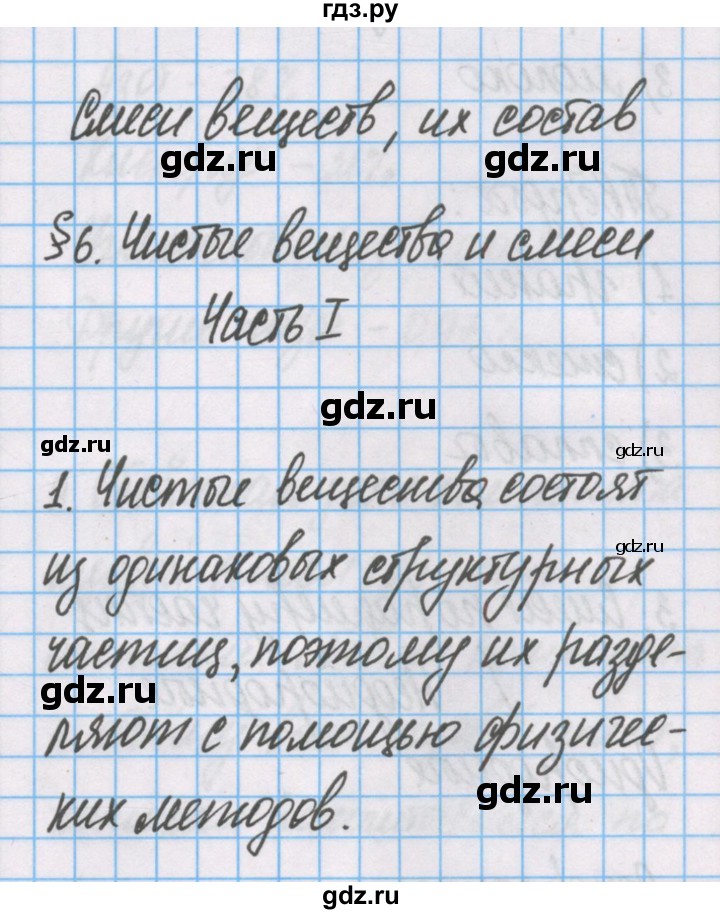 гдз.ру
Смеси веществ, их состав
gdz.ru gdz.ru
§6. Чистые вещества и смеси
Часть I
gdz.ru
gdz.ru gdz.ru
1. Чистые вещества состоят
gdz.ru
из одинаковых структурных
частиц, поэтому их разде-
gdz.ru
ляют с помощью физичес-
gdz.ru
ких методов.
gdz.ru